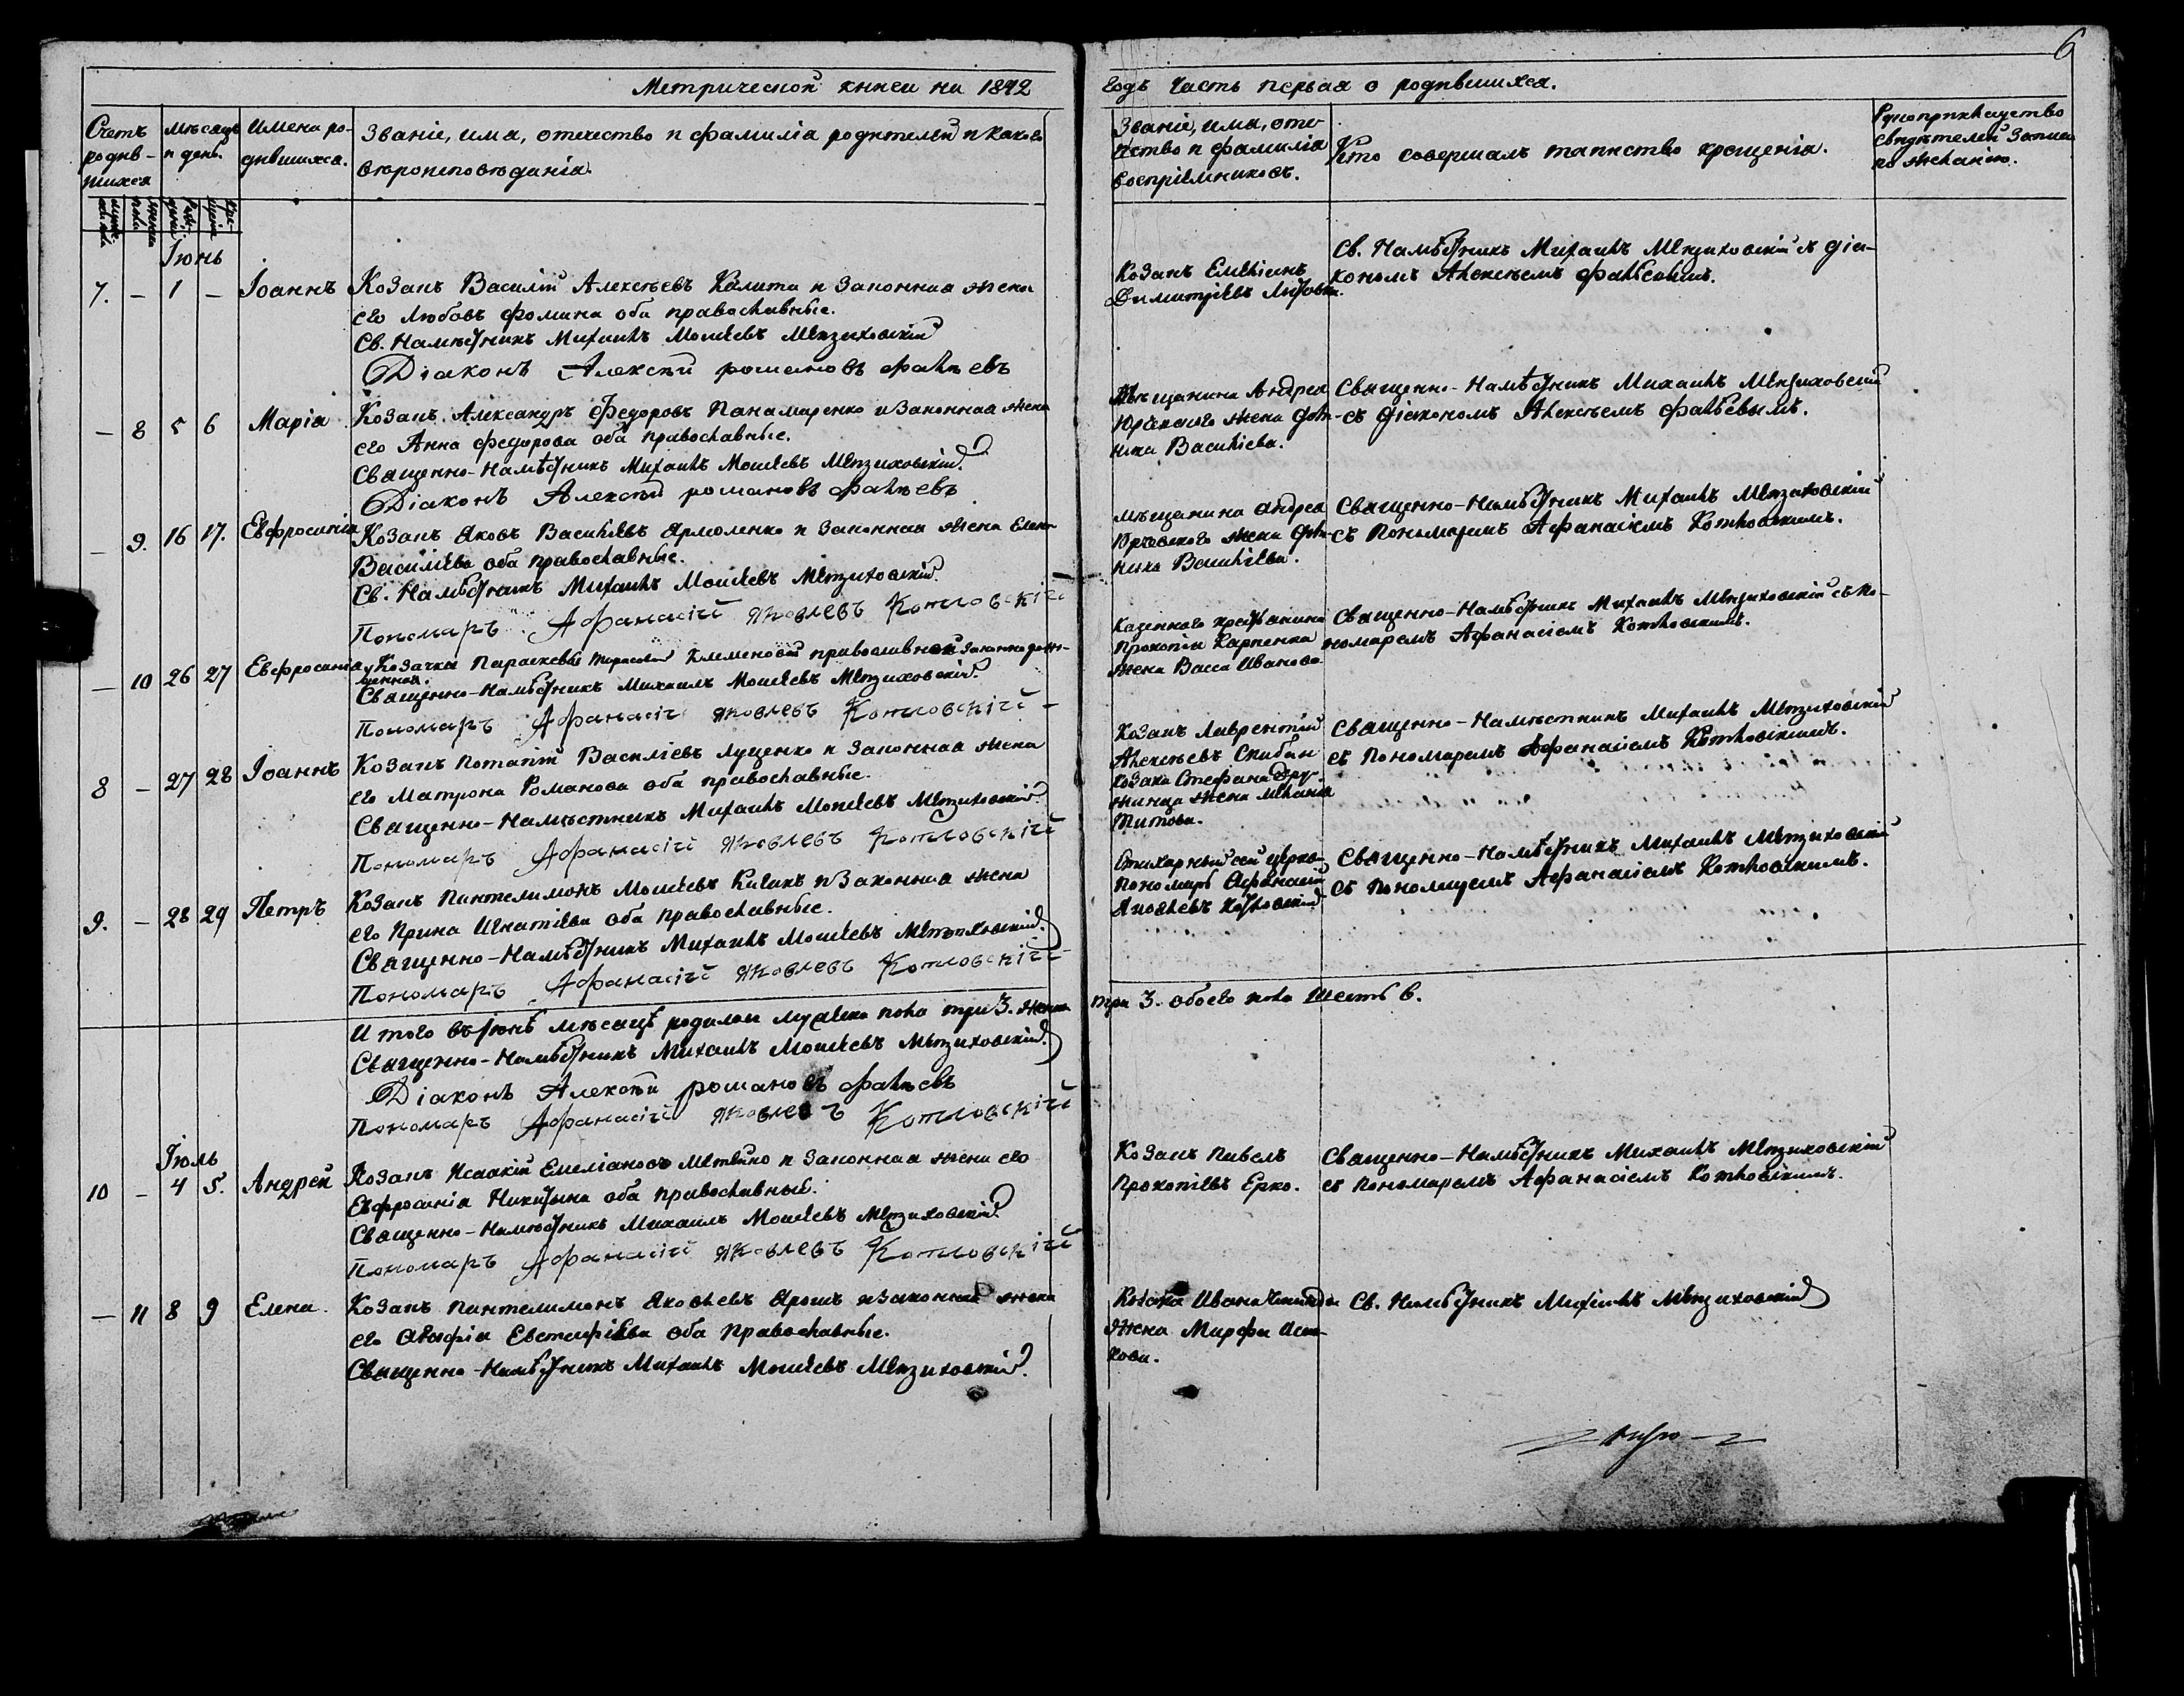 6
Метрической книги на 1842
годъ Часть первая о родившихся.
Счетъ родив-шихся
Мѣсяцъ и день.
Имена ро-дившихся.
Званіе, има, отечество и фамиліа родителей и каково
вѣроисповѣданіа.
Званіе, има, оте-
чество и фамиліа
воспріемниковъ.
Кто совершалъ таинство крещеніа.
свидѣтелей записи
по желанію.
Іюнь
7. – 1 – Іоаннъ
Козакъ Василій Алексѣевъ Калита и законнаа жена
его Любовь Фомина оба православные.
Св. Намѣстникъ Михаилъ Моисеевъ
Діаконъ Алексѣй романовъ
Козакъ Емеліанъ
Димитріевъ
Св. Намѣстникъ Михаилъ с діа-
кономъ Алексѣемъ
– 8 5 6 Маріа
Козакъ Александръ Федоровъ Панамаренко и законнаа жена
его Анна Федорова оба православные.
Священно-Намѣстникъ Михаилъ Моисеевъ
Діаконъ Алексѣй романовъ
Мѣщанина Андреа
жена Дом-
ника Василіева.
Священно-Намѣстникъ Михаилъ
съ діакономъ Алексѣемъ
– 9. 16 17. Евфросиніа
Козакъ Яковъ Василіевъ Ярмоленко и законнаа жена Елена
Василіева оба православные.
Св. Намѣстникъ Михаилъ Моисеевъ
Пономаръ Афанасій Яковлевъ Котловскій
Мѣщанина Андреа
жена Дом-
ника Василіева.
Священно-Намѣстникъ Михаилъ
съ Пономаремъ Афанасіемъ Котловскимъ.
– 10 26 27 Евфросиніа
у Козачки Параскевы православной
Священно-Намѣстникъ Михаилъ Моисеевъ
Пономаръ Афанасій Яковлевъ Котловскій
Казеннаго крестьанина
Прокопіа Карпенка
жена Васса Иванова
Священно-Намѣстникъ Михаилъ съ По-
номаремъ Афанасіемъ Котловскимъ.
8 – 27 28 Іоаннъ
Козакъ Потапій Василіевъ Луценко и законнаа жена
его Матрона Романова оба православные.
Священно-Намѣстникъ Михаилъ Моисеевъ
Пономаръ Афанасій Яковлевъ Котловскій
Козакъ Лаврентій
Алексѣевъ Скибан
козака Стефана Дру-
жинца жена Меланіа
Титова.
Священно-Намѣстникъ Михаилъ
съ Пономаремъ Афанасіемъ Котловскимъ.
9. – 28 29 Петръ
Козакъ Пантелимонъ Моисеевъ и законнаа жена
его Ирина Игнатіева оба православные.
Священно-Намѣстникъ Михаилъ Моисеевъ
Пономаръ Афанасій Яковлевъ Котловскій
Стихарный сей церкви
Пономарь Афанасій
Яковлевъ Котловскій
Священно-Намѣстникъ Михаилъ
съ Пономаремъ Афанасіемъ Котловскимъ.
И того въ Іюнѣ мѣсяцѣ родилось мужеска пола три 3. женска
три 3. обоего пола шесть 6.
Священно-Намѣстникъ Михаилъ Моисеевъ
Діаконъ Алексѣй романовъ
Пономаръ Афанасій Яковлевъ Котловскій
Іюль
10 – 4 5. Андрей
Козакъ Исаакій Емеліановъ и законнаа жена его
Евфросиніа Никитина оба православные.
Священно-Намѣстникъ Михаилъ Моисеевъ
Пономаръ Афанасій Яковлевъ Котловскій
Козакъ Павелъ
Прокопіевъ Ерко.
Священно-Намѣстникъ Михаилъ
съ Пономаремъ Афанасіемъ Котловскимъ.
– 11 8 9 Елена.
Козакъ Пантелимонъ Яковлевъ Ярошъ и законнаа жена
его Агафіа Евстафіева оба Православные.
Священно-Намѣстникъ Михаилъ Моисеевъ
Козака Ивана
жена Марфа
Св. Намѣстникъ Михаилъ